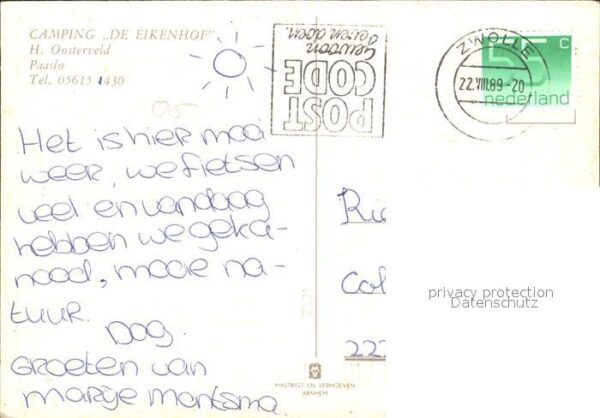 CAMPING „DE EIKENHOF"
H. Oosterveld
Paaslo
Tel. 05615 1430
Het is hier mooi
weer, we fietsen
veel en vandaag
hebben we geka-
nood, mooie na-
tuur.
Dag.
Groeten van
marije montsma
POST
CODE
Gewoon
even doen
ZWOLLE
22.VIII.89-20
55 c
nederland
Ric
Col
222
privacy protection
Datenschutz
MASTRIGT EN VERHOEVEN
ARNHEM